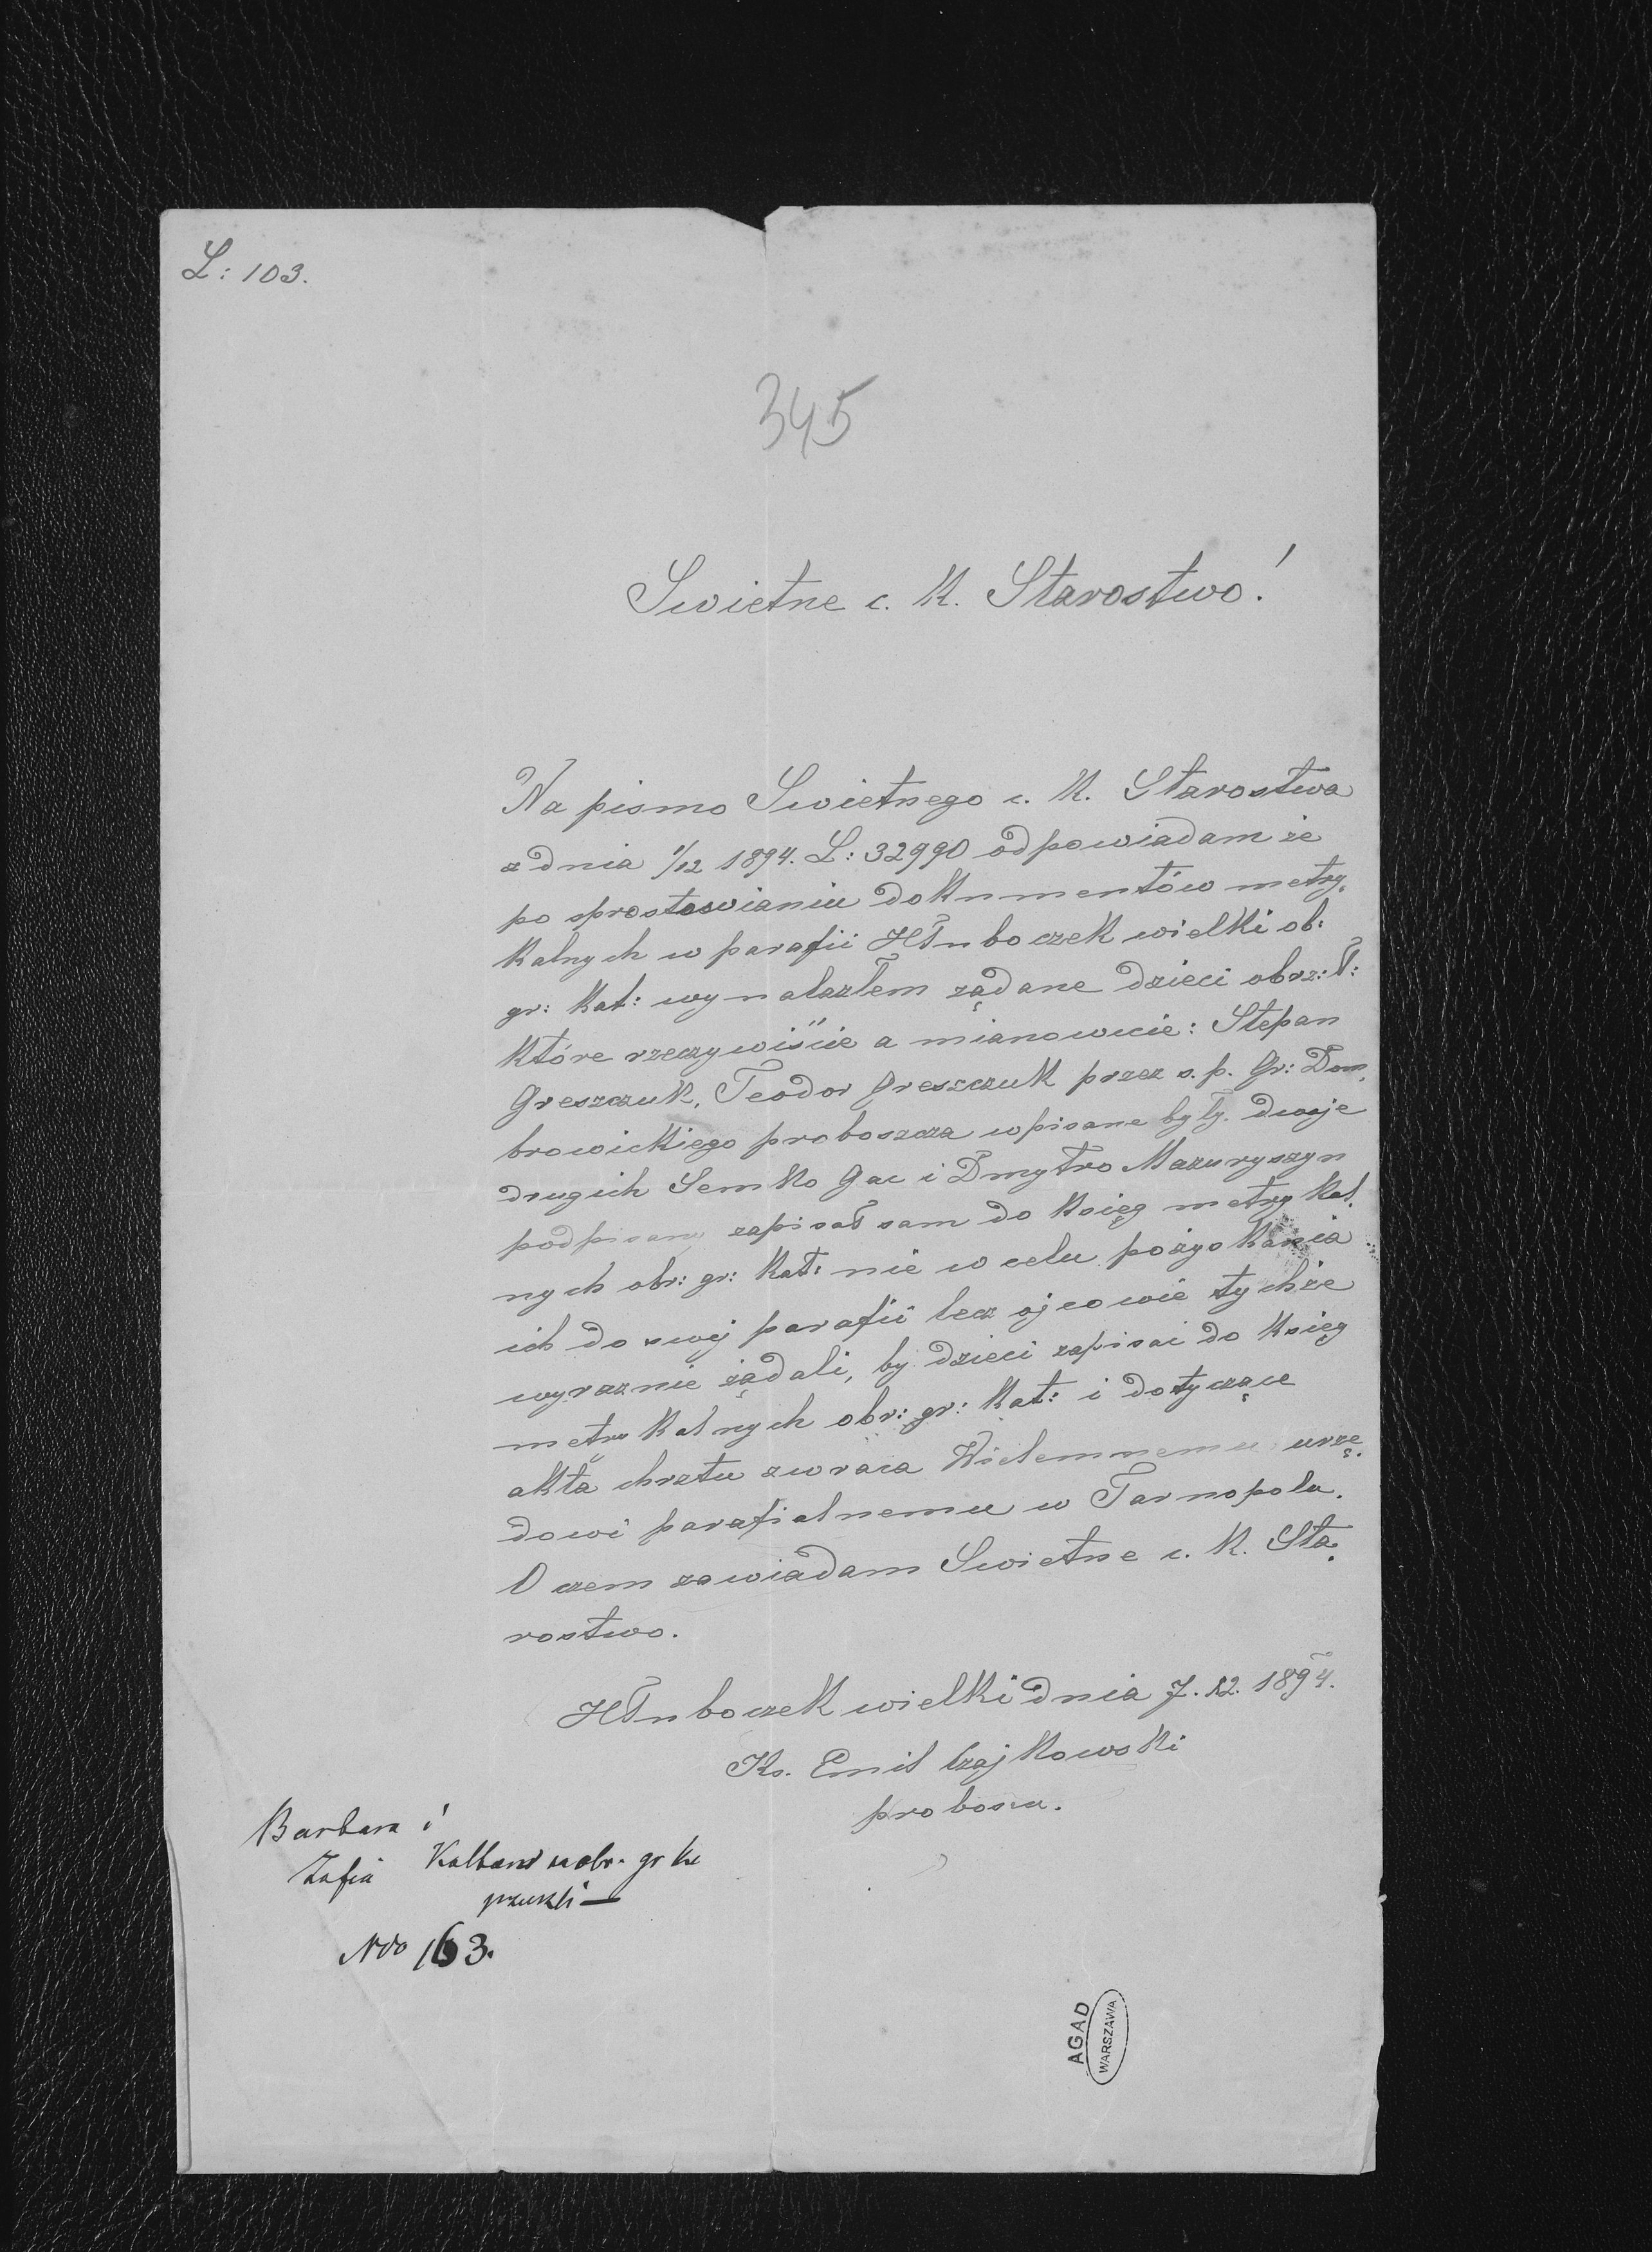 L: 103.
345
Swietne c. K. Starostwo!
Na pismo Swietnego c. K. Starostwa
z dnia 1/12 1894. L: 32990 odpowiadam że
po sprostowianiu dokumentów metry,
kalnych w parafii Hłuboczek wielki ob:
gr: Kat: wynalazłem żądane dzieci obrz: ł:
Które rzeczywiście a mianowicie: Stepan
Greszczuk, Teodor Greszczuk przez s. p. Gr: Dom,
browickiego proboszcza wpisane były. dwoje
drugich Semko Gac i Dmytro Mazuryszyn
podpisany zapisał sam do Księg metrykal.
nych obr: gr: Kat: nie w celu pozyskania
ich do swej parafii lecz ojcowie tychże
wyraznie żądali, by dzieci zapisac do Ksiąg
metrykalnych obr: gr: Kat: i dotyczące
akta chrztu zwraca Wielemnemu urzę.
dowi parafialnemu w Tarnopolu.
O czem zawiadam Swietne c. K. Sta.
rostwo.
Hłuboczek wielki dnia 7. 12. 1894.
Ks. Emil Czajkowski
probosz.
Barbara i
Zofia na obr. gr
No 163.
AGAD
WARSZAWA